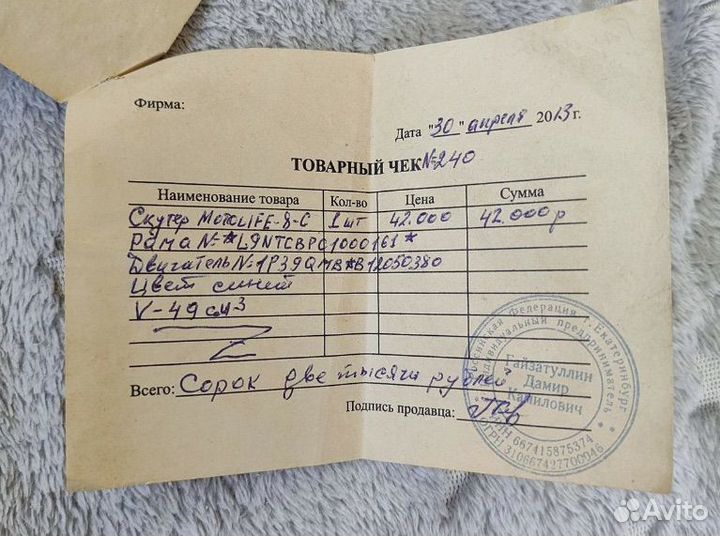 Фирма:
Дата "30" апреля 2013 г.
ТОВАРНЫЙ ЧЕК №240
Наименование товара Кол-во Цена Сумма
Скутер MOTOLIFE-8-C 1 шт 42.000 42.000р
Рама №*L9NTCBPC1000161*
Двигатель №1P39QMB*B12050380
Цвет синий
V-49 см3
Всего: Сорок две тысячи рублей
Подпись продавца:
Российская Федерация г. Екатеринбург
Индивидуальный предприниматель
Гайзатуллин
Дамир
Камилович
ИНН 667415875374
ОГРН 310667427700046
Avito